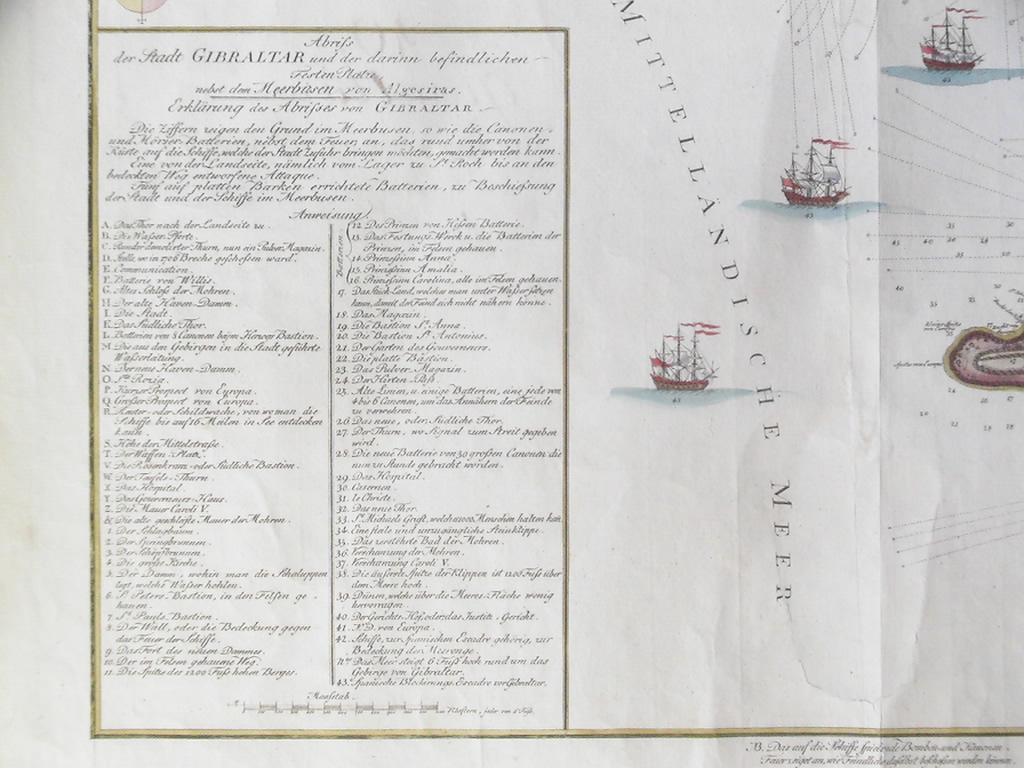 Abriss
der Stadt GIBRALTAR und der darinn befindlichen
Festen Plätze
nebst dem Meerbusen von Algesiras.
Erklärung des Abrisses von GIBRALTAR
Die Ziffern zeigen den Grund im Meerbusen, so wie die Canonen-
und Mörser-Batterien, nebst dem Feuer an, das rund umher von der
Küste auf die Schiffe, welche der Stadt Zufuhr bringen möchten, gemacht werden kann.
Eine von der Landseite, nämlich vom Lager zu St. Roch bis an den
bedeckten Weg entworfene Attaque.
Fünf auf platten Barken errichtete Batterien, zu Beschiessung
der Stadt und der Schiffe im Meerbusen.
Anweisung.
A. Das Thor nach der Landseite zu.
B. Die Wasser Pforte.
C. Runder demolirter Thurn, nun ein Pulver Magazin.
D. Stelle, wo in 1706 Breche geschossen ward.
E. Communication.
F. Batterie von Willis.
G. Altes Schloss der Mohren.
H. Der alte Haven-Damm.
I. Die Stadt.
K. Das Südliche Thor.
L. Batterien von 8 Canonen baÿm Herzog Bastion.
M. Die aus den Gebirgen in die Stadt geführte
Wasserleitung.
N. Der neue Haven-Damm.
O. St. Rozia.
P. Kurzer Prospect von Europa.
Q. Grosser Prospect von Europa.
R. Kloster- oder Schildwache, von wo man die
Schiffe bis auf 16 Meilen in See entdecken
kann.
S. Höhe der Mittelstraße.
T. Der Waffen-Platz.
V. Die Rosenkranz- oder Südliche Bastion.
W. Der Teufels-Thurn.
X. Das Hospital.
Y. Das Gouverneurs-Haus.
Z. Die Mauer Caroli V.
&. Die alte geschleifte Mauer der Mohren.
1. Der Schlagbaum.
2. Der Springbrunnen.
3. Der Schöpfbrunnen.
4. Die große Kirche.
5. Der Damm, wohin man die Schaluppen
legt, welche Wasser hohlen.
6. St. Peters Bastion, in den Felsen ge-
hauen.
7. St. Pauls Bastion.
8. Der Wall, oder die Bedeckung gegen
das Feuer der Schiffe.
9. Das Fort des neuen Dammes.
10. Der im Felsen gehauene Weg.
11. Die Spitze des 1200 Fuss hohen Berges.
Batterien.
12. Des Prinzen von Hessen Batterie.
13. Das Festungs-Werck u. die Batterien der
Prinzen, im Felsen gehauen.
14. Prinzessinn Anna.
15. Prinzessinn Amalia.
16. Prinzessinn Carolina, alle im Felsen gehauen.
17. Das Stück Land, welches man unter Wasser setzen
kann, damit der Feind sich nicht nähern könne.
18. Das Magazin.
19. Die Bastion St. Anna.
20. Die Bastion St. Antonius.
21. Der Garten des Gouverneurs.
22. Die platte Bastion.
23. Das Pulver Magazin.
24. Der Hirten Pass.
25. Alte Linien, u. einige Batterien, eine jede von
4 bis 6 Canonen, um das Annähern der Feinde
zu verwehren.
26. Das neue, oder Südliche Thor.
27. Der Thurn, wo Signal zum Streit gegeben
wird.
28. Die neue Batterie von 30 grossen Canonen die
nun zu Stande gebracht worden.
29. Das Hospital.
30. Casernen.
31. le Christe.
32. Das neue Thor.
33. St. Michaels Gruft, welche 1000 Menschen halten kan.
34. Eine steile und unzugängliche Steinklippe.
35. Das zerstöhrte Bad der Mohren.
36. Verschanzung der Mohren.
37. Verschanzung Caroli V.
38. Die äusserste Spitze der Klippen ist 1200 Füss über
dem Meere hoch.
39. Dünen, welche über die Meeres-Fläche wenig
hervorragen.
40. Der Gerichts-Hof, oder das Justitz-Gericht.
41. N.D. von Europa.
42. Schiffe, zur Spanischen Escadre gehörig, zur
Bedeckung der Meerenge.
Das Meer steigt 6 Füss hoch rund um das
Gebirge von Gibraltar.
43. Spanische Blockirungs-Escadre vor Gibraltar.
Maasstab.
Klaftern, jeder von 6 Fuss.
MITTELLÄNDISCHE MEER
43
43
NB. Das auf die Schiffe spielende Bomben- und Kanonen-
Feuer zeiget an, wie Feindliche daselbst beschossen werden können.